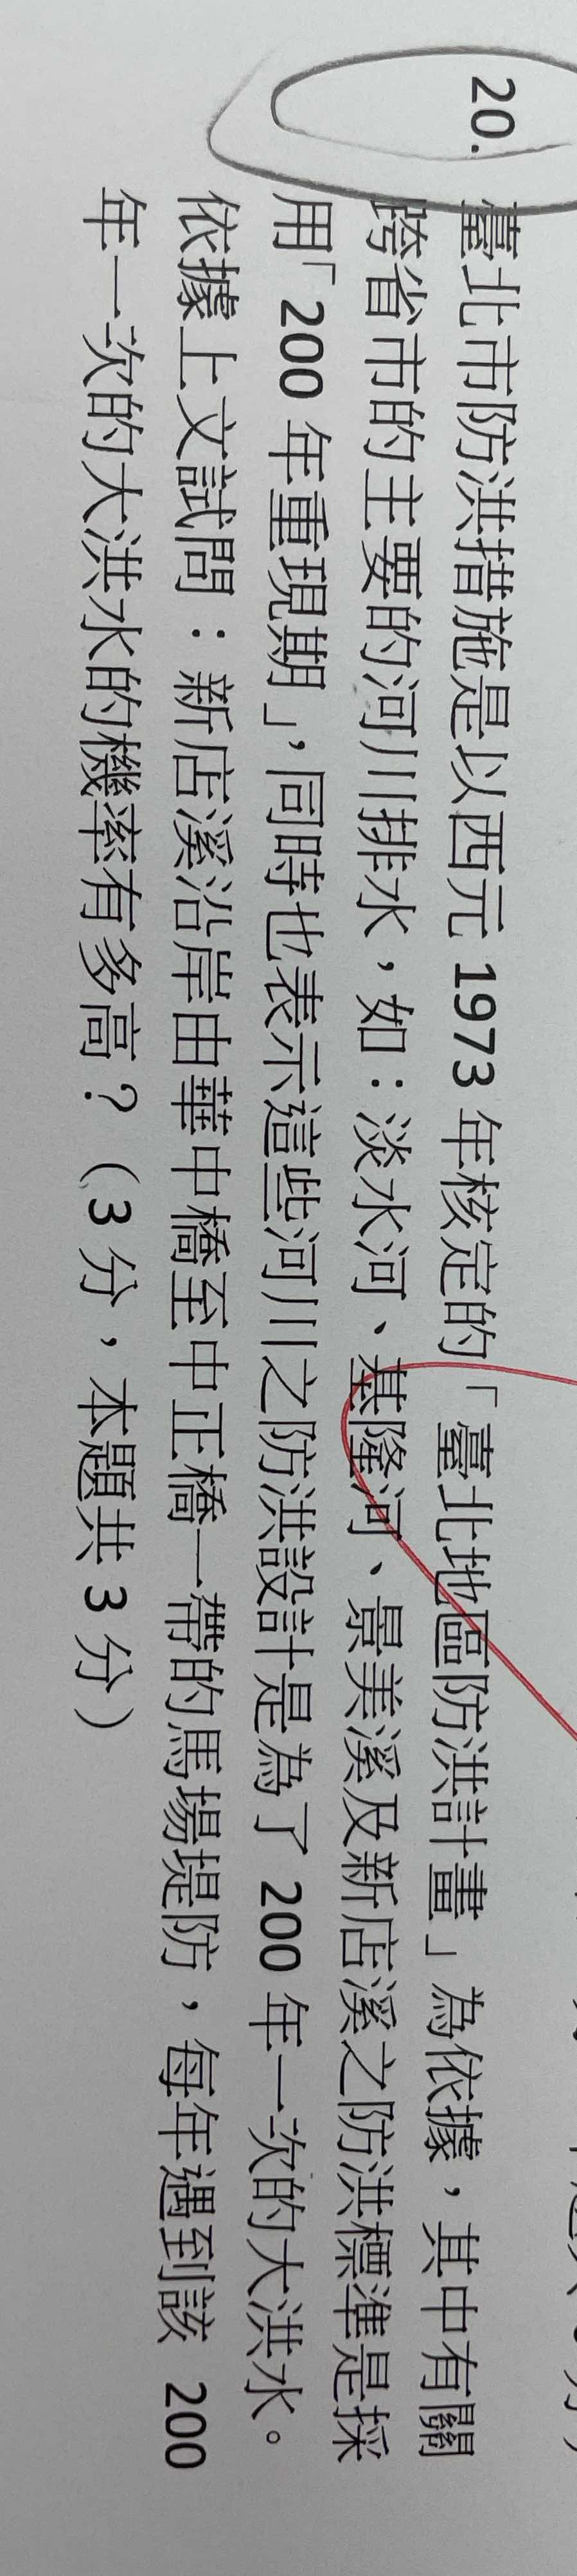 20.
臺北市防洪措施是以西元 1973 年核定的「臺北地區防洪計畫」為依據，其中有關
跨省市的主要的河川排水，如：淡水河、基隆河、景美溪及新店溪之防洪標準是採
用「200 年重現期」，同時也表示這些河川之防洪設計是為了 200 年一次的大洪水。
依據上文試問：新店溪沿岸由華中橋至中正橋一帶的馬場堤防，每年遇到該 200
年一次的大洪水的機率有多高？（3 分，本題共 3 分）